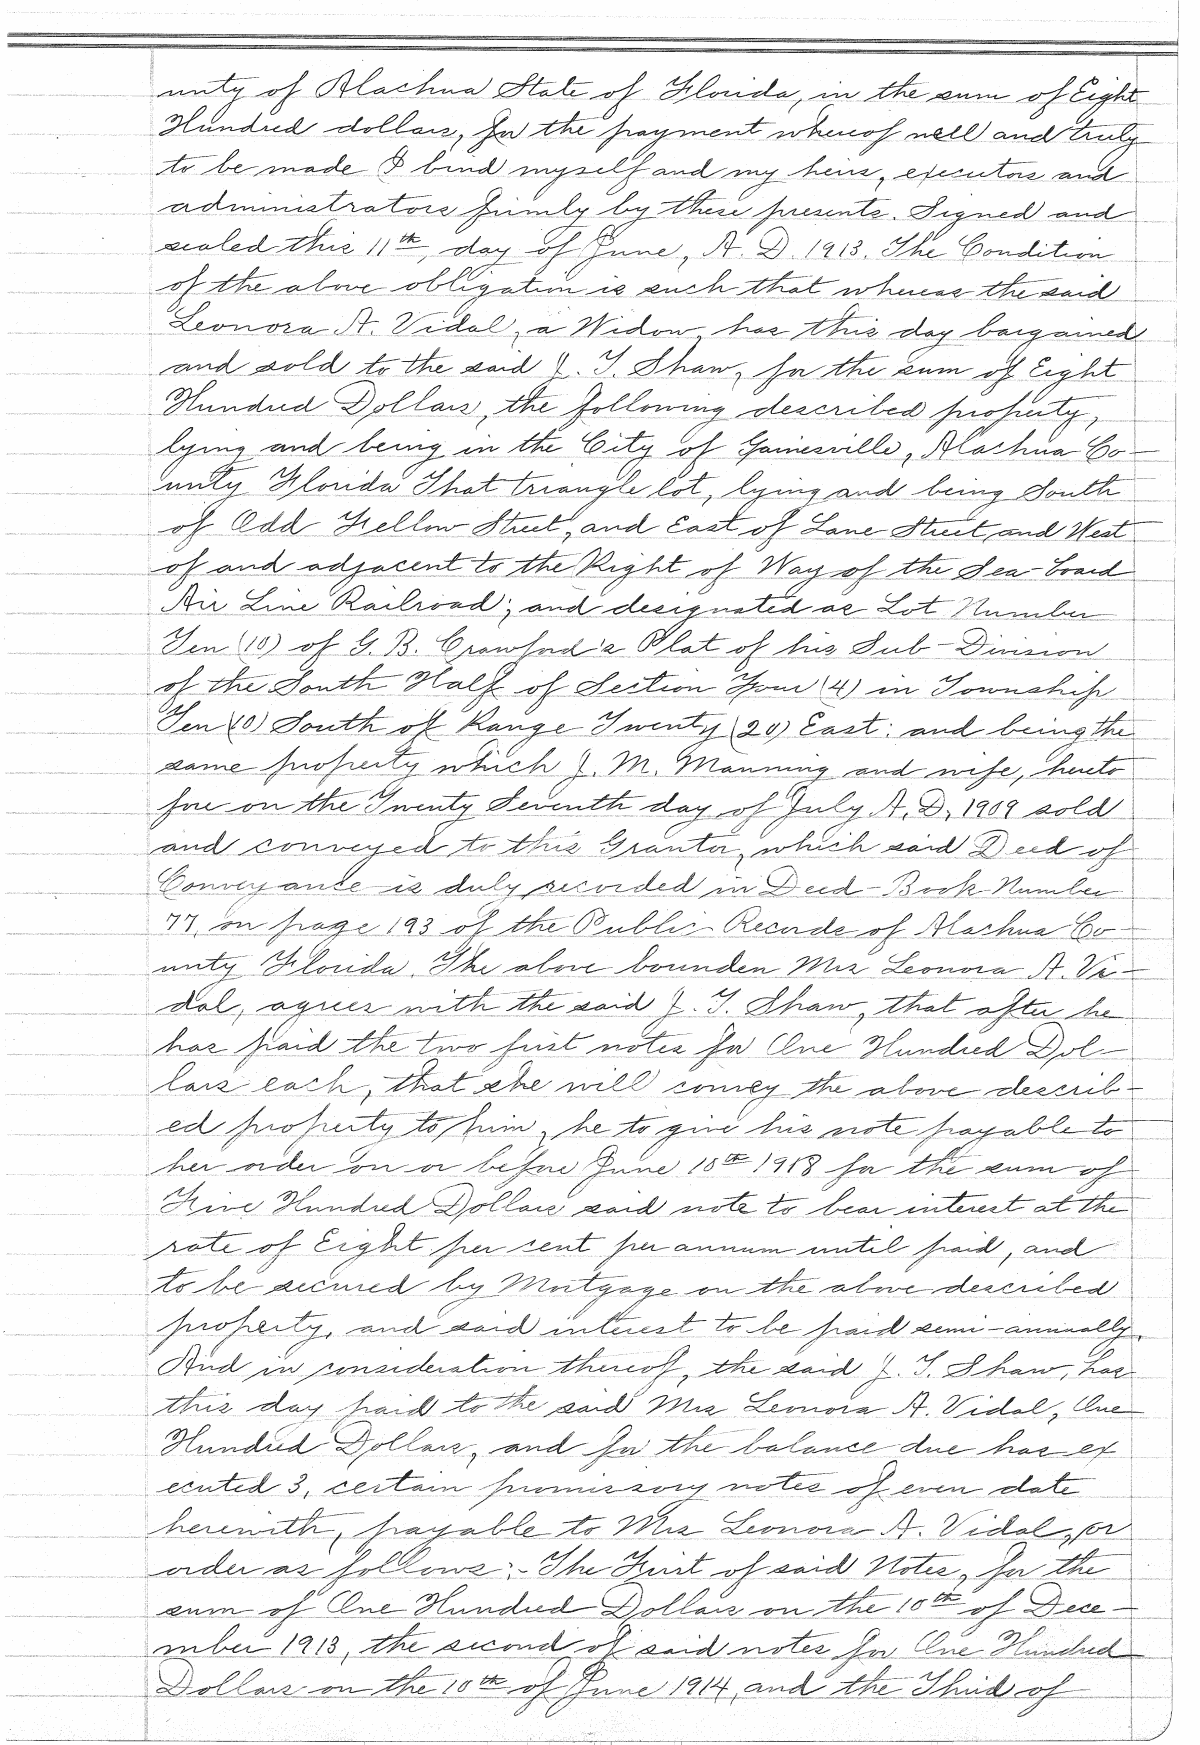 unty of Alachua State of Florida, in the sum of Eight
Hundred dollars, for the payment whereof well and truly
to be made I bind myself and my heirs, executors and
administrators firmly by these presents. Signed and
sealed this 11th, day of June, A. D. 1913. The Condition
of the above obligation is such that whereas the said
Leonora A. Vidal, a Widow, has this day bargained
and sold to the said J. T. Shaw, for the sum of Eight
Hundred Dollars, the following described property,
lying and being in the City of Gainesville, Alachua Co-
unty Florida That triangle lot, lying and being South
of Odd Fellow Street, and East of Lane Street, and West
of and adjacent to the Right of Way of the Sea-board
Air Line Railroad; and designated as Lot Number
Ten (10) of G. B. Crawford's Plat of his Sub-Division
of the South Half of Section Four (4) in Township
Ten (10) South of Range Twenty (20) East: and being the
same property which J. M. Manning and wife, hereto
fore on the Twenty Seventh day of July A. D, 1909 sold
and conveyed to this Grantor, which said Deed of
Conveyance is duly recorded in Deed-Book Number
77, on page 193 of the Public Records of Alachua Co-
unty Florida. The above bounden Mrs Leonora A. Vi-
dal, agrees with the said J. T. Shaw, that after he
has paid the two first notes for One Hundred Dol-
lars each, that she will convey the above describ-
ed property to him, he to give his note payable to
her order on or before June 10th 1918 for the sum of
Five Hundred Dollars said note to bear interest at the
rate of Eight per cent per annum until paid, and
to be secured by Mortgage on the above described
property, and said interest to be paid semi-annually.
And in consideration thereof, the said J. T. Shaw, has
this day paid to the said Mrs Leonora A. Vidal, One
Hundred Dollars, and for the balance due has ex
ecuted 3, certain promissory notes of even date
herewith, payable to Mrs Leonora A. Vidal, or
order as follows:- The First of said Notes, for the
sum of One Hundred Dollars on the 10th of Dece-
mber 1913, the second of said notes for One Hundred
Dollars on the 10th of June 1914, and the Third of